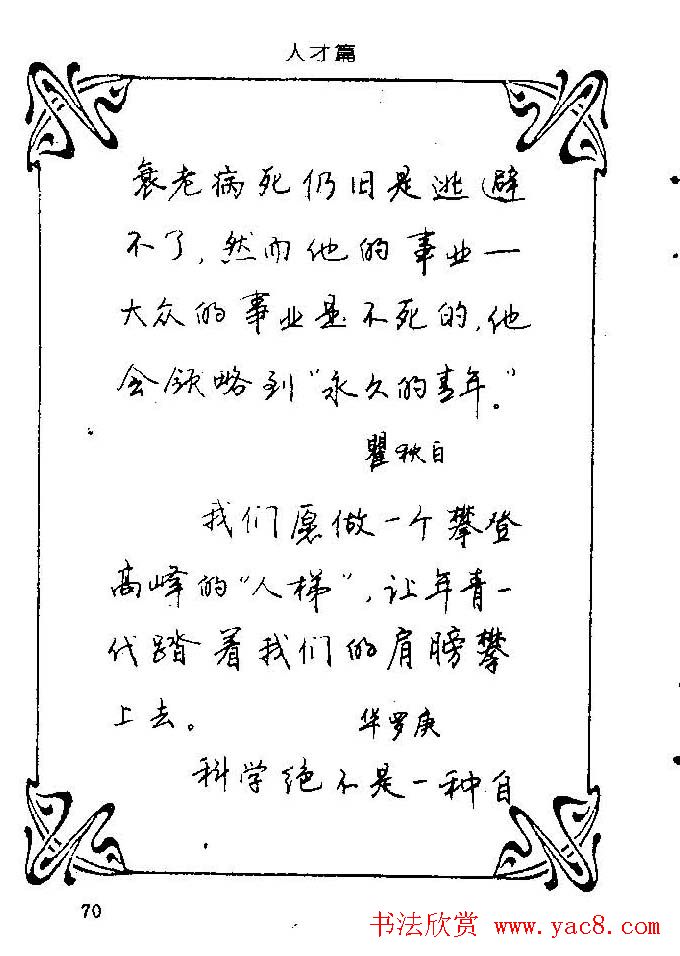 人才篇
衰老病死仍旧是逃避
不了，然而他的事业一
大众的事业是不死的，他
会领略到“永久的青年。”
瞿秋白
我们愿做一个攀登
高峰的“人梯”，让年青一
代踏着我们的肩膀攀
上去。 华罗庚
科学绝不是一种自
70
书法欣赏 www.yac8.com